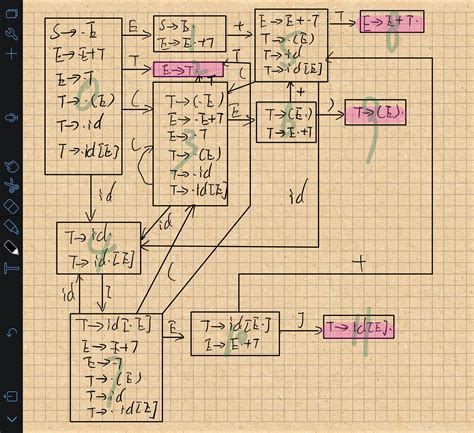 S→.E
E→.E+T
E→.T
T→.(E)
T→.id
T→.id[E]
0
E
S→E.
E→E.+T
1
+
E→E+.T
T→.(E)
T→.id
T→.id[E]
5
T
E→E+T.
8
T
E→T.
2
T
(
T→(.E)
E→.E+T
E→.T
T→.(E)
T→.id
T→.id[E]
3
(
(
E
T→(E.)
E→E.+T
6
+
)
T→(E).
9
id
id
id
T→id.
T→id.[E]
4
id
[
(
+
T→id[.E]
E→.E+T
E→.T
T→.(E)
T→.id
T→.id[E]
7
E
T→id[E.]
E→E.+T
10
]
T→id[E].
11